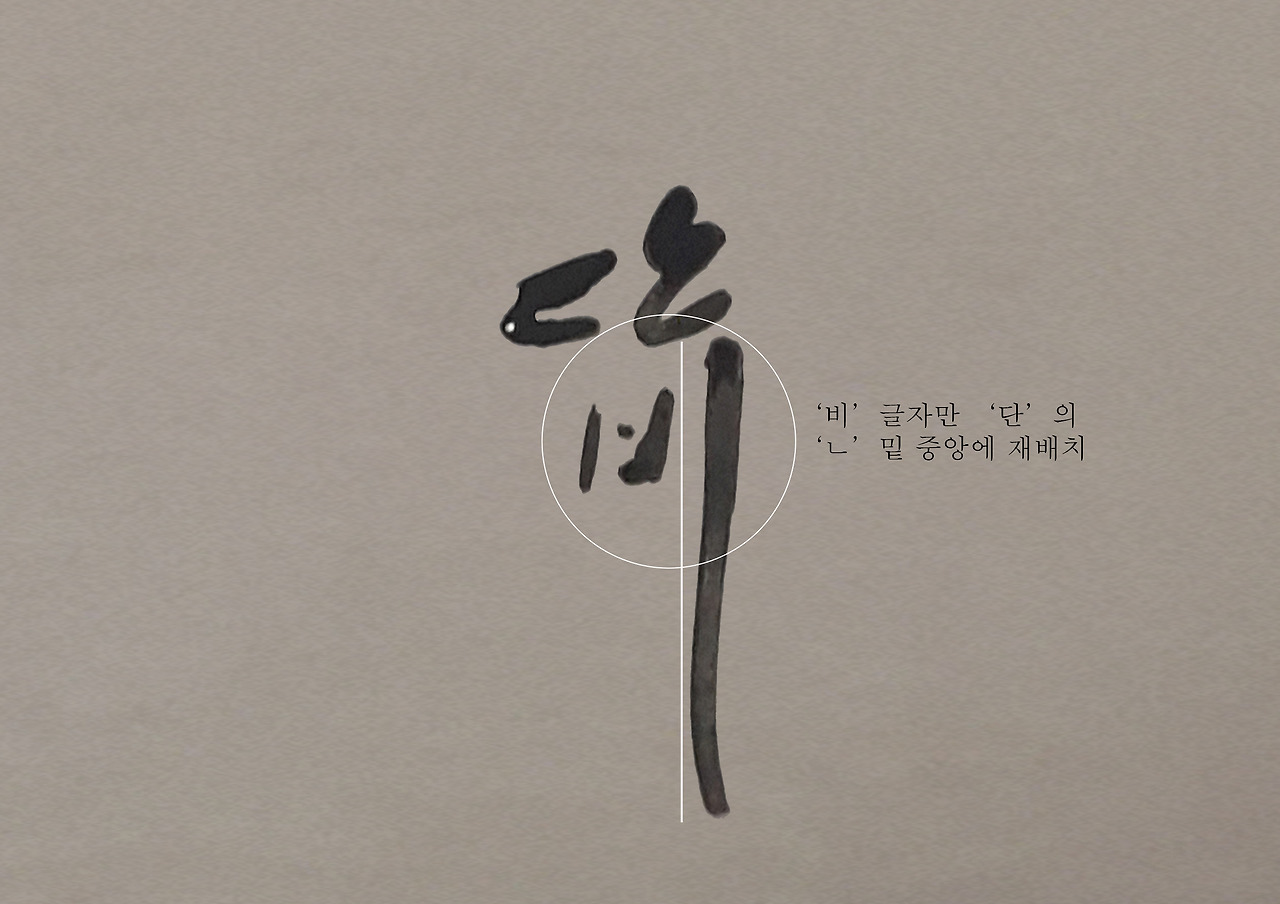 단
비
‘비’ 글자만 ‘단’ 의
‘ㄴ’ 밑 중앙에 재배치